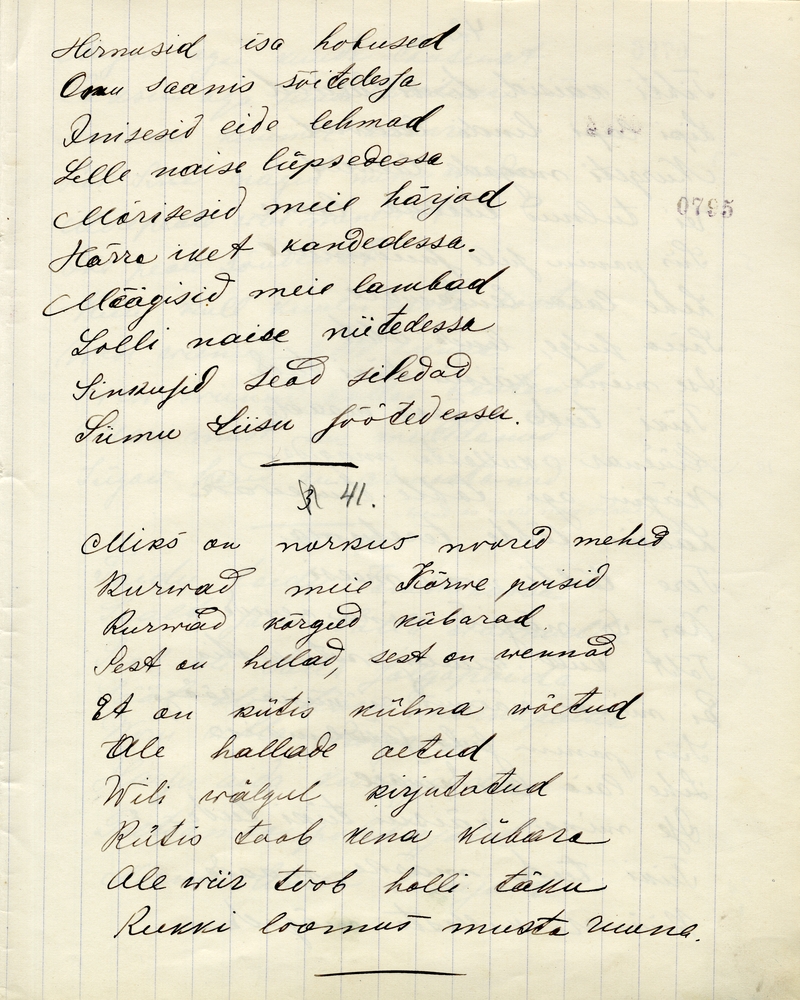 Hirnusid isa hobused
Onu saanis sõitedessa
Inisesid eide lehmad
Lelle naise lüpsedessa
Mörisesid meie härjad
Härra iket kandedessa.
0795
Määgisid meie lambad
Lolli naise niitedessa
Sinkusid sead siledad
Siimu Liisu söötedessa.
41.
Miks on norkus noored mehed
Kurwad meie Kõrwe poisid
Kurwad kõrged kübarad
Sest on hellad, sest on wennad
Et on kütis külma wõetud
Ale hallade aetud
Wili wälgul kirjutatud
Kütis toob kena kübara
Ale wiir toob halli täku
Rukki loomus musta ruuna.